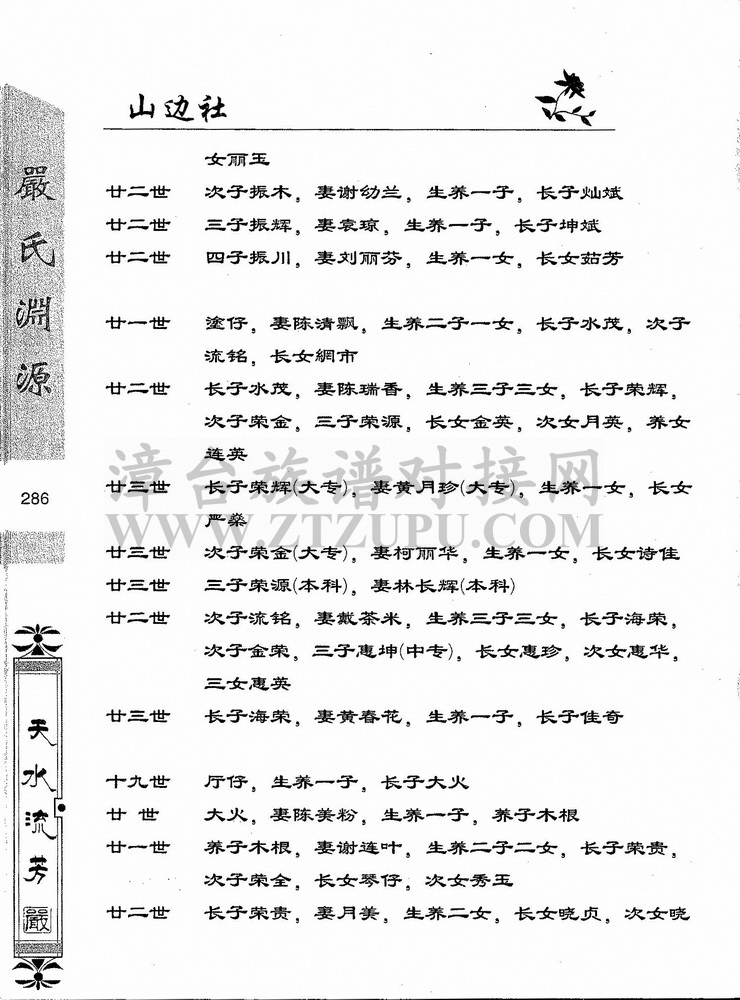 山边社
女丽玉
廿二世 次子振木，妻谢幼兰，生养一子，长子灿斌
廿二世 三子振辉，妻袁琼，生养一子，长子坤斌
廿二世 四子振川，妻刘丽芬，生养一女，长女茹芳
廿一世 塗仔，妻陈清飘，生养二子一女，长子水茂，次子
流铭，长女網市
廿二世 长子水茂，妻陈瑞香，生养三子三女，长子荣辉，
次子荣金，三子荣源，长女金英，次女月英，养女
连英
廿三世 长子荣辉(大专)，妻黄月珍(大专)，生养一女，长女
严燊
廿三世 次子荣金(大专)，妻柯丽华，生养一女，长女诗佳
廿三世 三子荣源(本科)，妻林长辉(本科)
廿二世 次子流铭，妻戴茶米，生养三子三女，长子海荣，
次子金荣，三子惠坤(中专)，长女惠珍，次女惠华，
三女惠英
廿三世 长子海荣，妻黄春花，生养一子，长子佳奇
十九世 厅仔，生养一子，长子大火
廿世 大火，妻陈美粉，生养一子，养子木根
廿一世 养子木根，妻谢连叶，生养二子二女，长子荣贵，
次子荣全，长女琴仔，次女秀玉
廿二世 长子荣贵，妻月美，生养二女，长女晓贞，次女晓
嚴氏淵源
286
天水流芳
嚴
漳台族谱对接网
WWW.ZTZUPU.COM